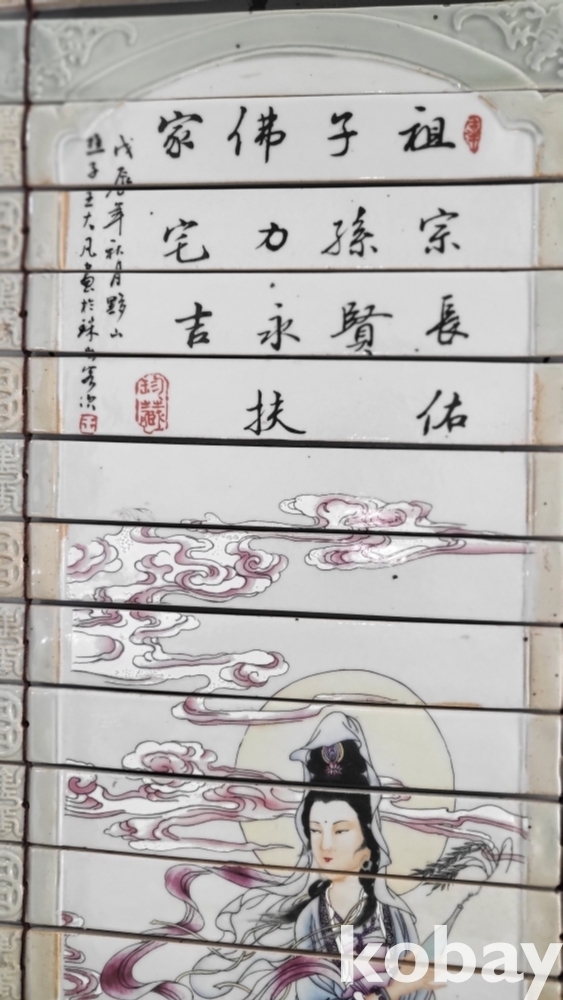 祖宗長佑
子孫賢
佛力永扶
家宅吉
戊辰年秋月黟山
樵子王大凡畫於珠山客次
kobay